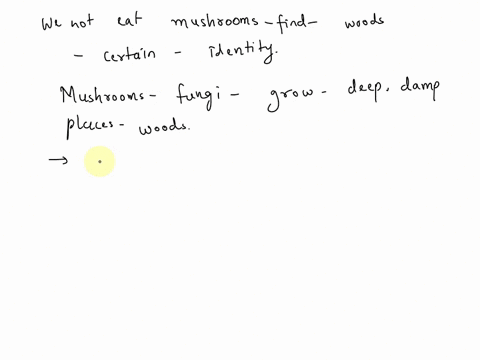 We not eat mushrooms - find - woods
- certain - identity.
Mushrooms - fungi - grow - deep. damp
places - woods.
→